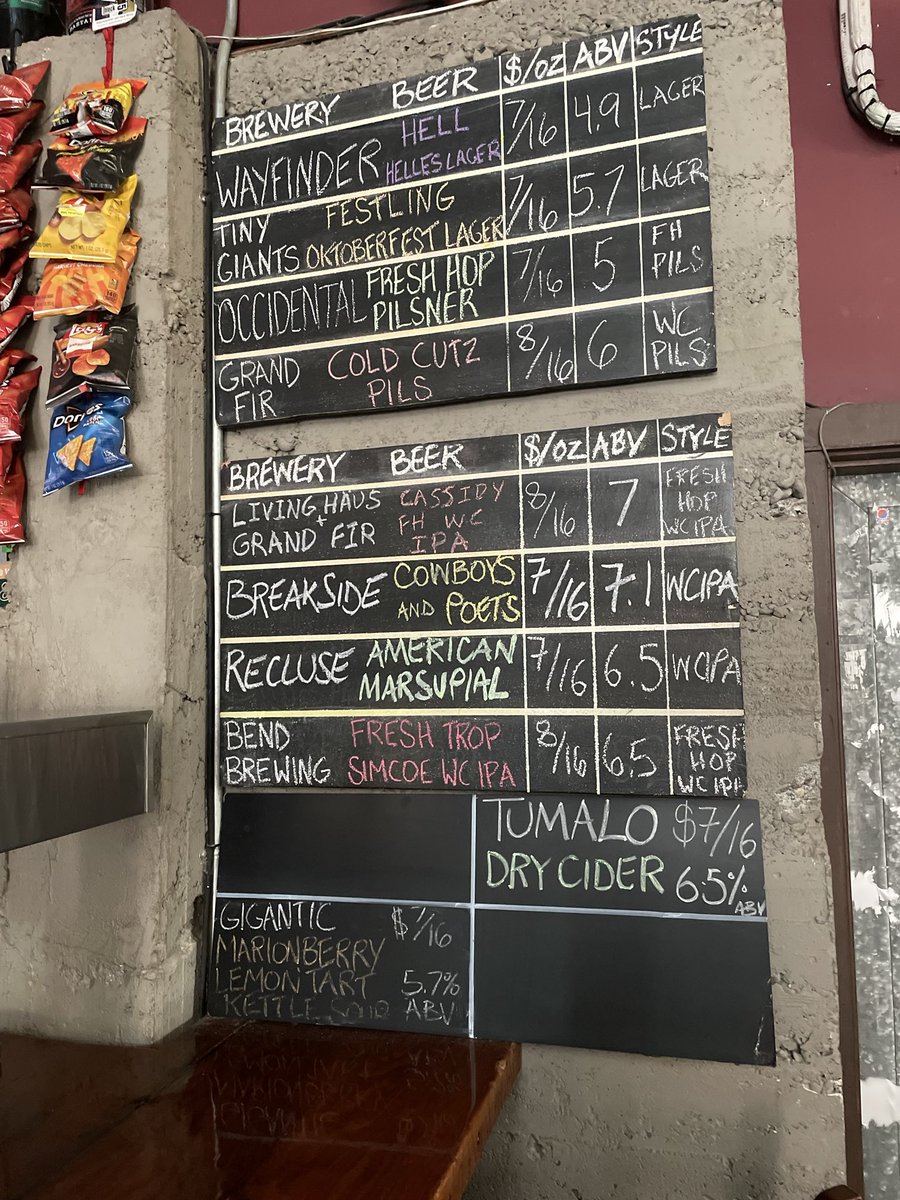 BREWERY BEER $/OZ ABV STYLE
WAYFINDER HELL HELLES LAGER 7/16 4.9 LAGER
TINY GIANTS FESTLING OKTOBERFEST LAGER 7/16 5.7 LAGER
OCCIDENTAL FRESH HOP PILSNER 7/16 5 FH PILS
GRAND FIR COLD CUTZ PILS 8/16 6 WC PILS
BREWERY BEER $/OZ ABV STYLE
LIVING HAUS + GRAND FIR CASSIDY FH WC IPA 8/16 7 FRESH HOP WCIPA
BREAKSIDE COWBOYS AND POETS 7/16 7.1 WCIPA
RECLUSE AMERICAN MARSUPIAL 7/16 6.5 WCIPA
BEND BREWING FRESH TROP SIMCOE WC IPA 8/16 6.5 FRESH HOP WC IPA
TUMALO $7/16
DRY CIDER 6.5% ABV
GIGANTIC $7/16
MARIONBERRY
LEMON TART 5.7%
KETTLE SOUR ABV
Doritos